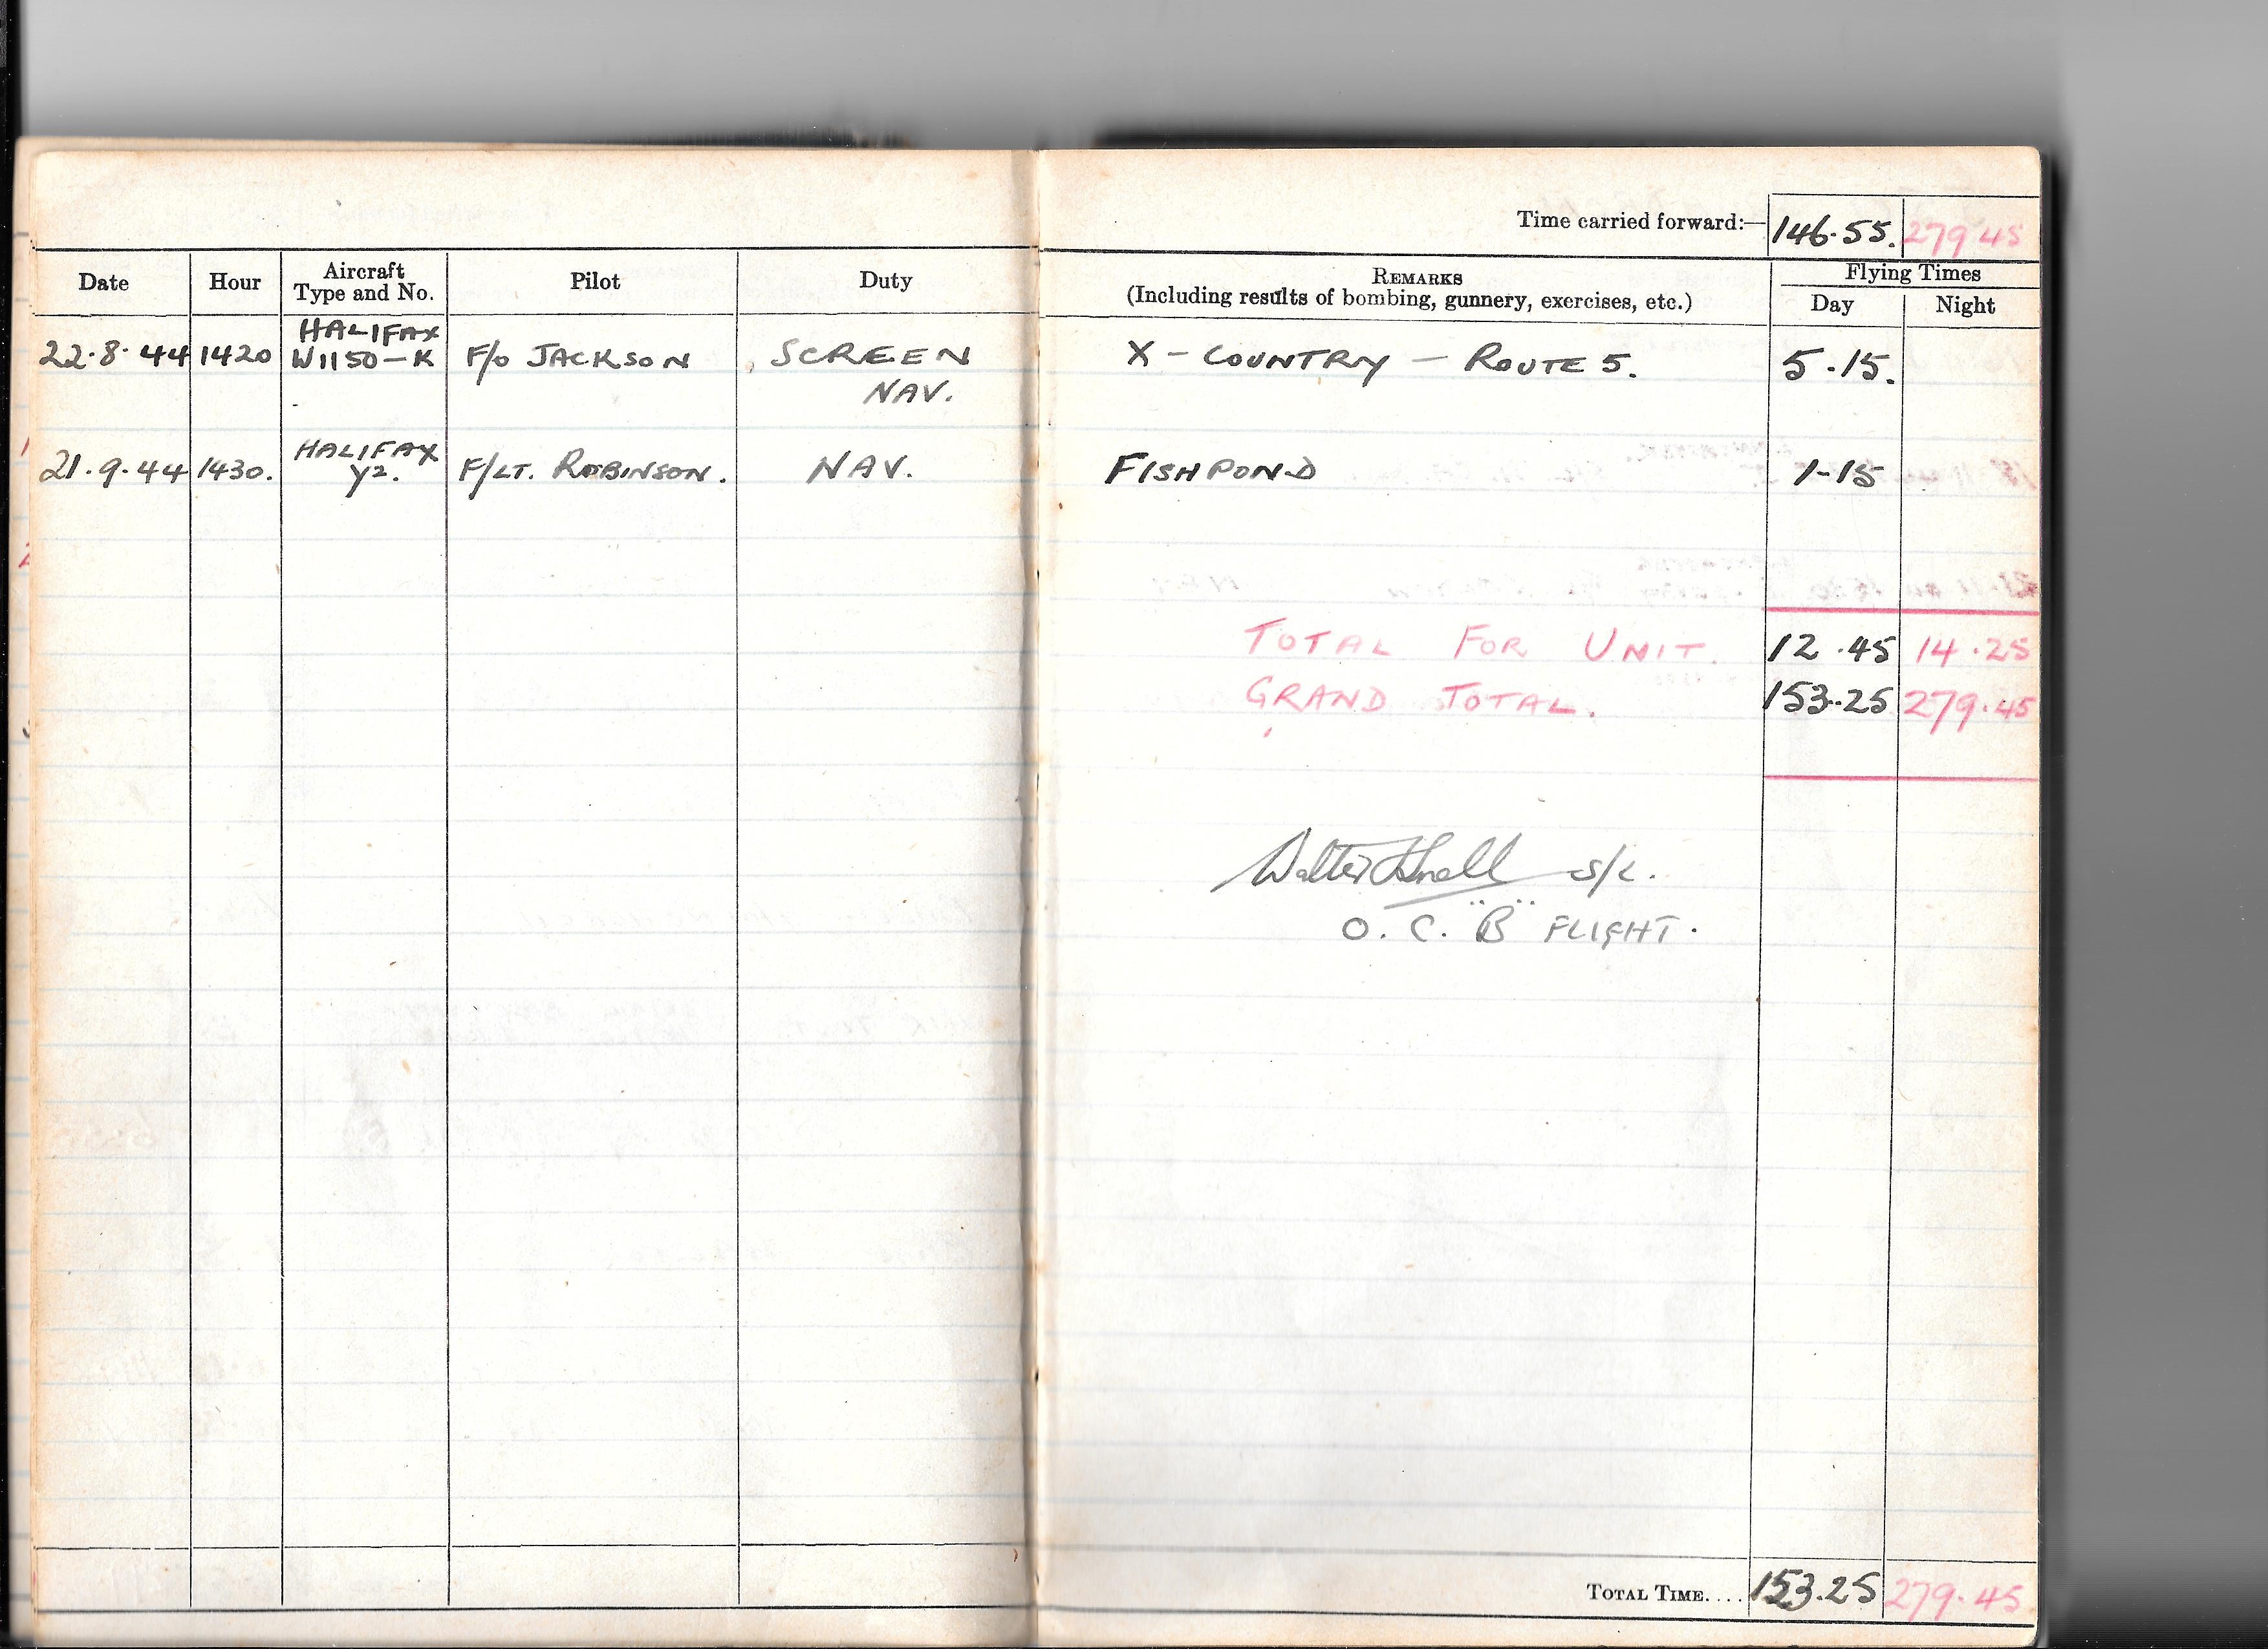 Time carried forward:— 146.55. 279.45
Date Hour Aircraft Type and No. Pilot Duty REMARKS (Including results of bombing, gunnery, exercises, etc.) Flying Times Day Night
HALIFAX
22.8.44 1420 W1150-K F/O JACKSON SCREEN X-COUNTRY - ROUTE 5. 5.15.
NAV.
HALIFAX
21.9.44 1430. Y2. F/LT. ROBINSON. NAV. FISHPOND 1-15
TOTAL FOR UNIT. 12.45 14.25
GRAND TOTAL. 153.25 279.45
Walter S/L.
O.C. "B" FLIGHT.
TOTAL TIME.... 153.25 279.45